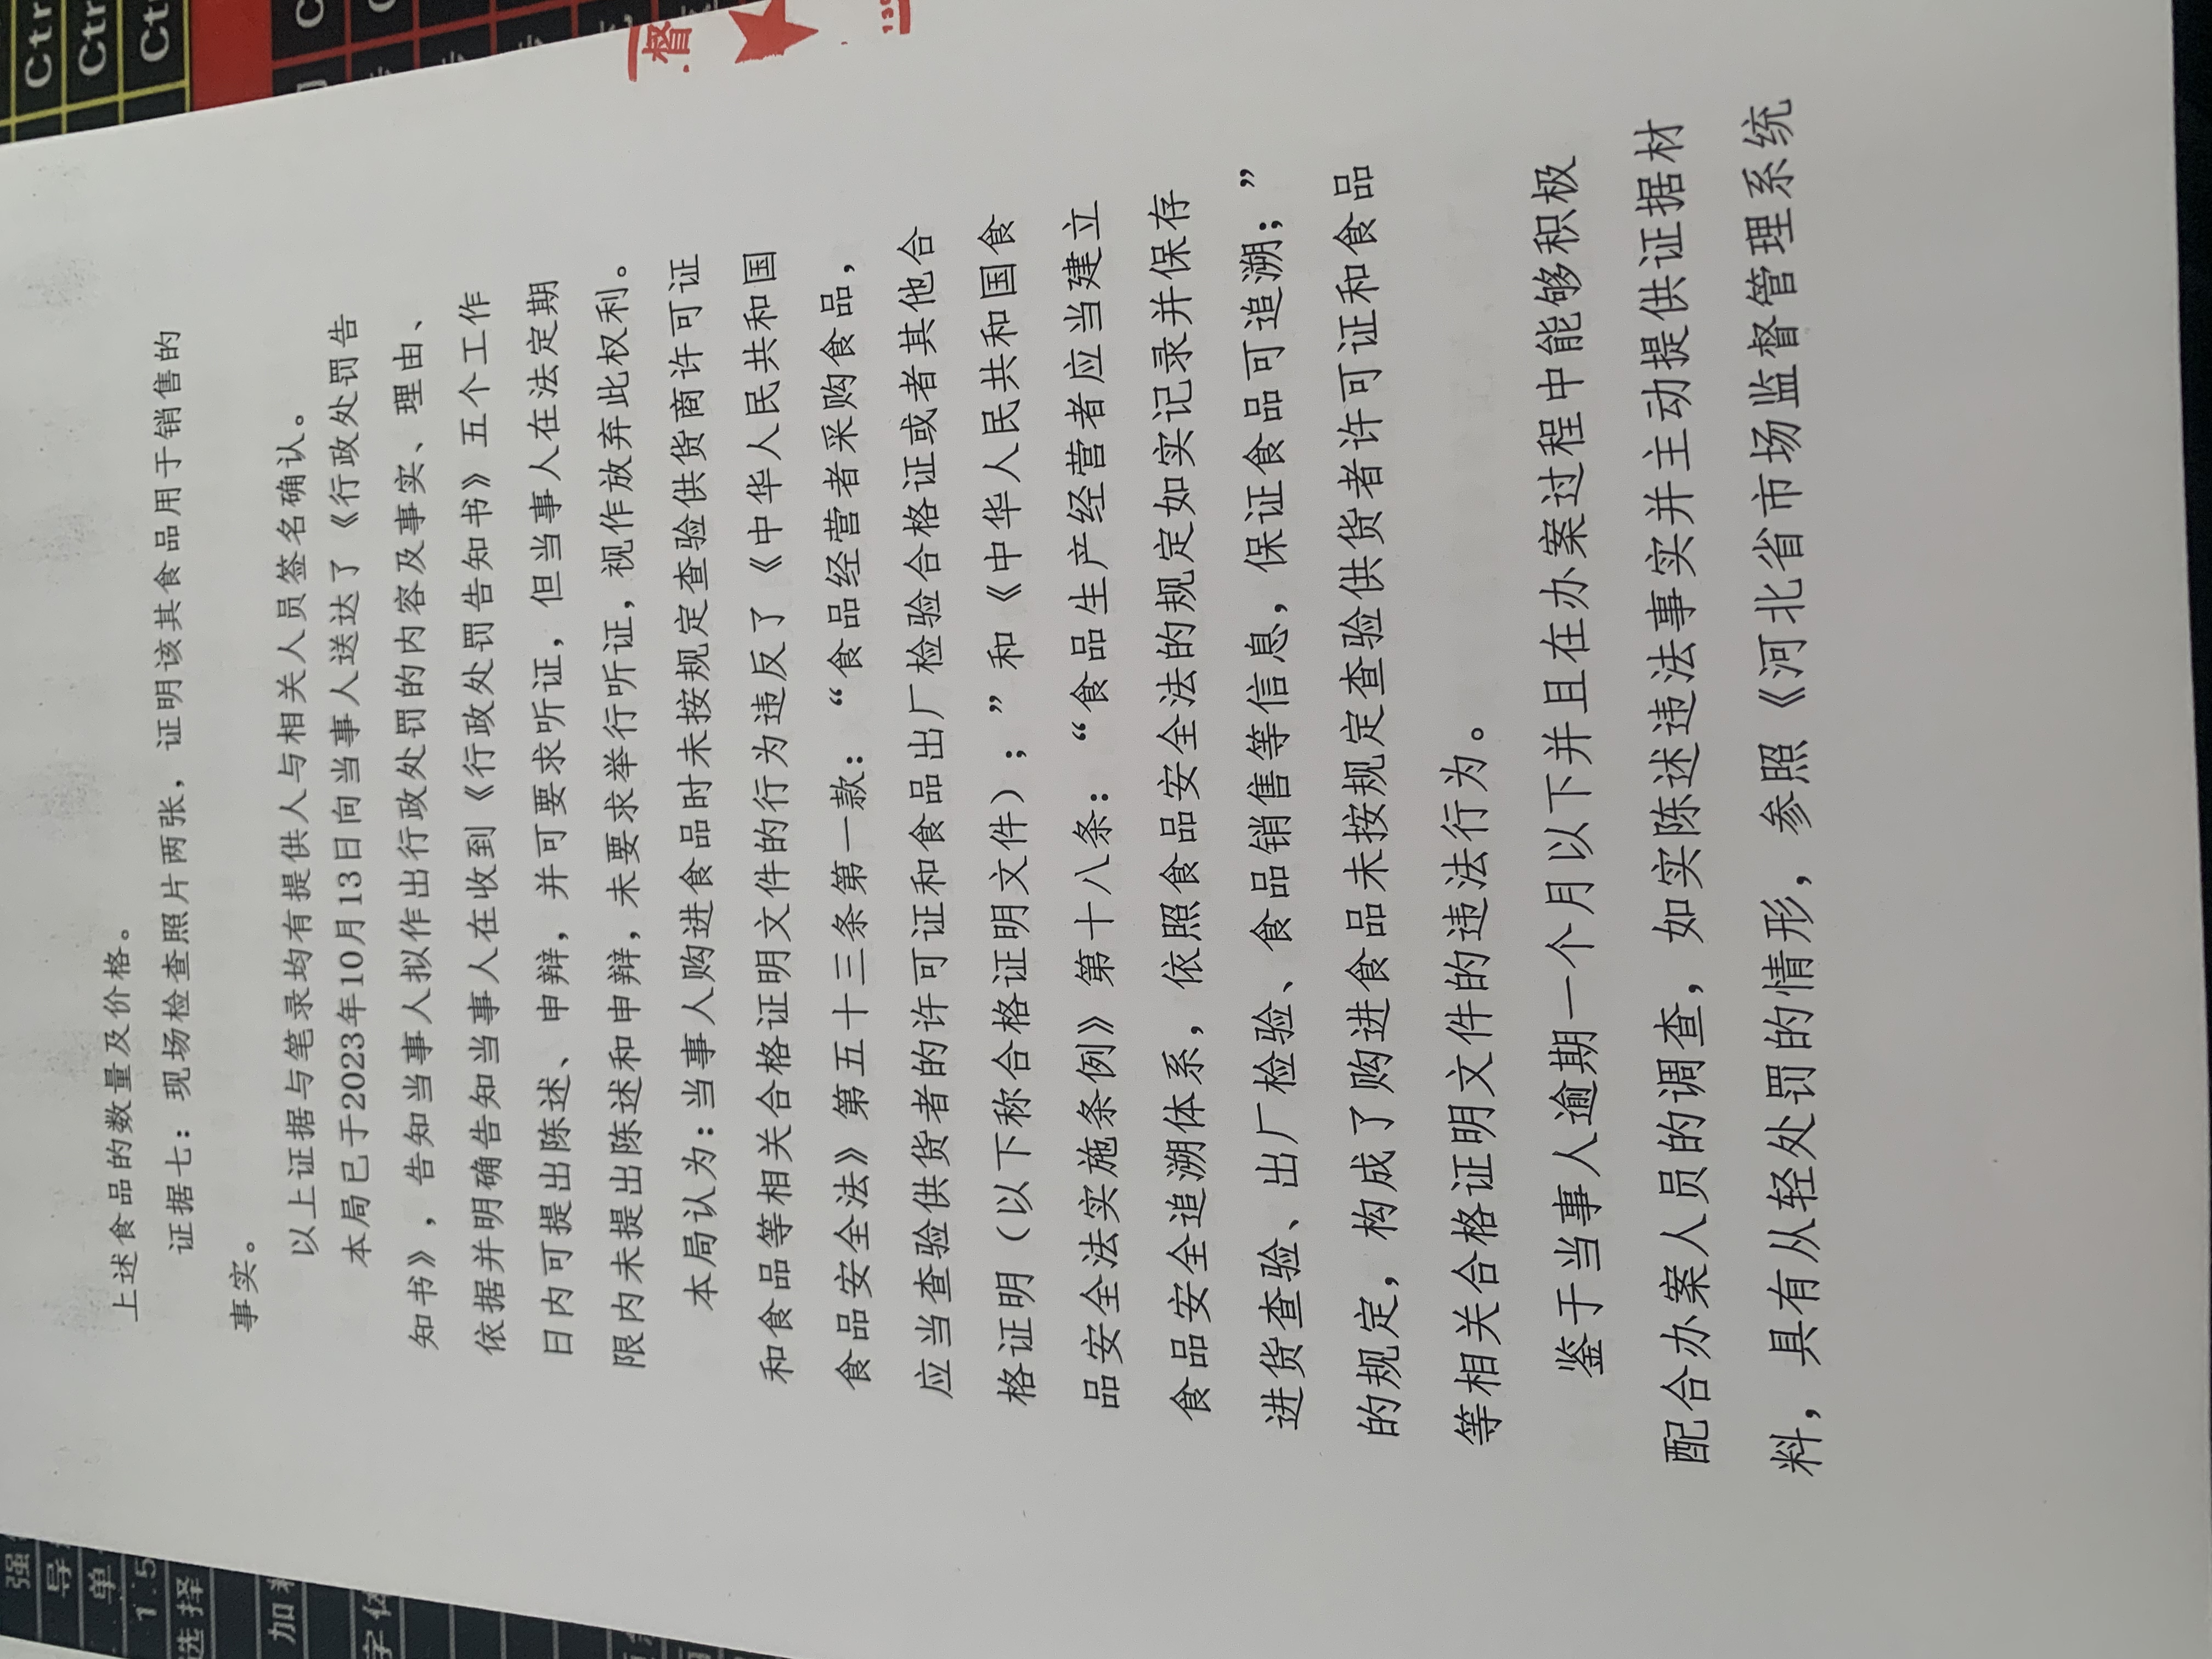 上述食品的数量及价格。
证据七：现场检查照片两张，证明该其食品用于销售的
事实。
以上证据与笔录均有提供人与相关人员签名确认。
本局已于2023年10月13日向当事人送达了《行政处罚告
知书》，告知当事人拟作出行政处罚的内容及事实、理由、
依据并明确告知当事人在收到《行政处罚告知书》五个工作
日内可提出陈述、申辩，并可要求听证，但当事人在法定期
限内未提出陈述和申辩，未要求举行听证，视作放弃此权利。
本局认为：当事人购进食品时未按规定查验供货商许可证
和食品等相关合格证明文件的行为违反了《中华人民共和国
食品安全法》第五十三条第一款：“食品经营者采购食品，
应当查验供货者的许可证和食品出厂检验合格证或者其他合
格证明（以下称合格证明文件）；”和《中华人民共和国食
品安全法实施条例》第十八条：“食品生产经营者应当建立
食品安全追溯体系，依照食品安全法的规定如实记录并保存
进货查验、出厂检验、食品销售等信息，保证食品可追溯；”
的规定，构成了购进食品未按规定查验供货者许可证和食品
等相关合格证明文件的违法行为。
鉴于当事人逾期一个月以下并且在办案过程中能够积极
配合办案人员的调查，如实陈述违法事实并主动提供证据材
料，具有从轻处罚的情形，参照《河北省市场监督管理系统
督
Ctr
Ctr
Ct
强
导
单
1.5
选择
加
字